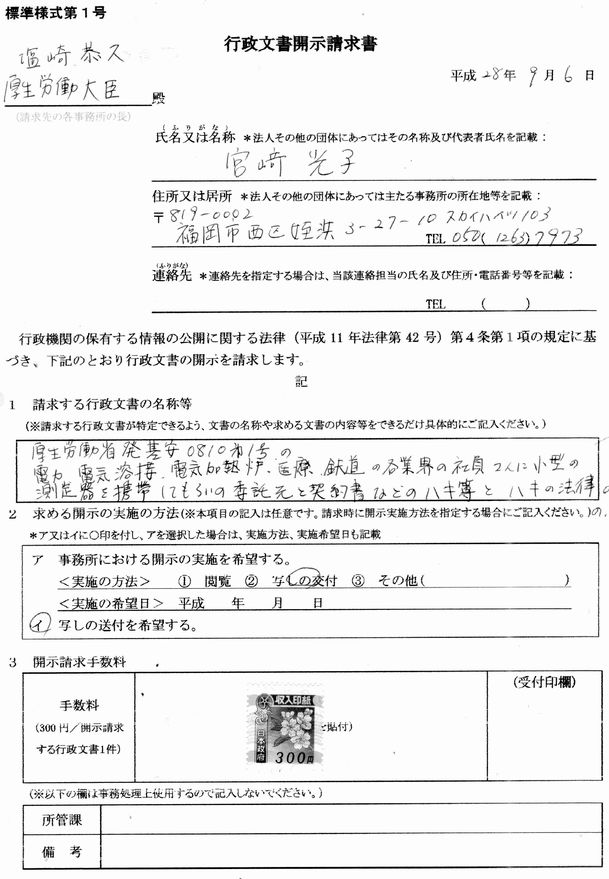 標準様式第1号
行政文書開示請求書
塩崎恭久
平成28年9月6日
厚生労働大臣 殿
(請求先の各事務所の長)
(ふりがな)
氏名又は名称 *法人その他の団体にあってはその名称及び代表者氏名を記載:
宮崎光子
住所又は居所 *法人その他の団体にあっては主たる事務所の所在地等を記載:
〒819-0002
福岡市西区姪浜3-27-10スカイハイツ103
TEL 050(1263)7973
(ふりがな)
連絡先 *連絡先を指定する場合は、当該連絡担当の氏名及び住所・電話番号等を記載:
TEL ( )
行政機関の保有する情報の公開に関する法律(平成11年法律第42号)第4条第1項の規定に基
づき、下記のとおり行政文書の開示を請求します。
記
1 請求する行政文書の名称等
(※請求する行政文書が特定できるよう、文書の名称や求める文書の内容等をできるだけ具体的にご記入ください。)
厚生労働省発基安0810第1号の
電力、電気溶接、電気加熱炉、医療、鉄道の各業界の社員2人に小型の
測定器を携帯してもらいの委託元と契約書などのハキ等とハキの法律の
2 求める開示の実施の方法(※本項目の記入は任意です。請求時に開示実施方法を指定する場合にご記入ください。)の、
*ア又はイに○印を付し、アを選択した場合は、実施方法、実施希望日も記載
ア 事務所における開示の実施を希望する。
<実施の方法> ① 閲覧 ② 写しの交付 ③ その他( )
<実施の希望日> 平成 年 月 日
イ 写しの送付を希望する。
3 開示請求手数料
手数料
(300円/開示請求
する行政文書1件)
収入印紙
日本政府
300円
を貼付)
(受付印欄)
(※以下の欄は事務処理上使用するので記入しないでください。)
所管課
備考